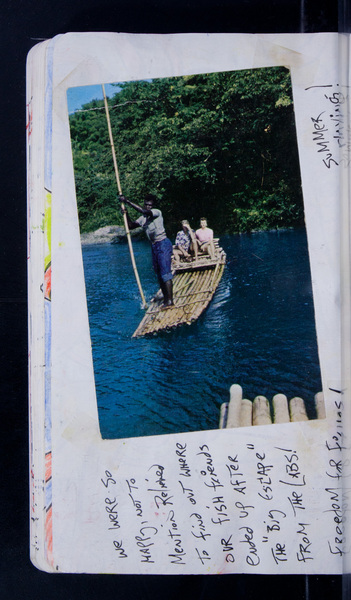 we were so
Happy, not to
Mention Relieved
To find out where
our fish friends
ended up after
the "Big Escape"
From the Labs!
Freedom for
Summer